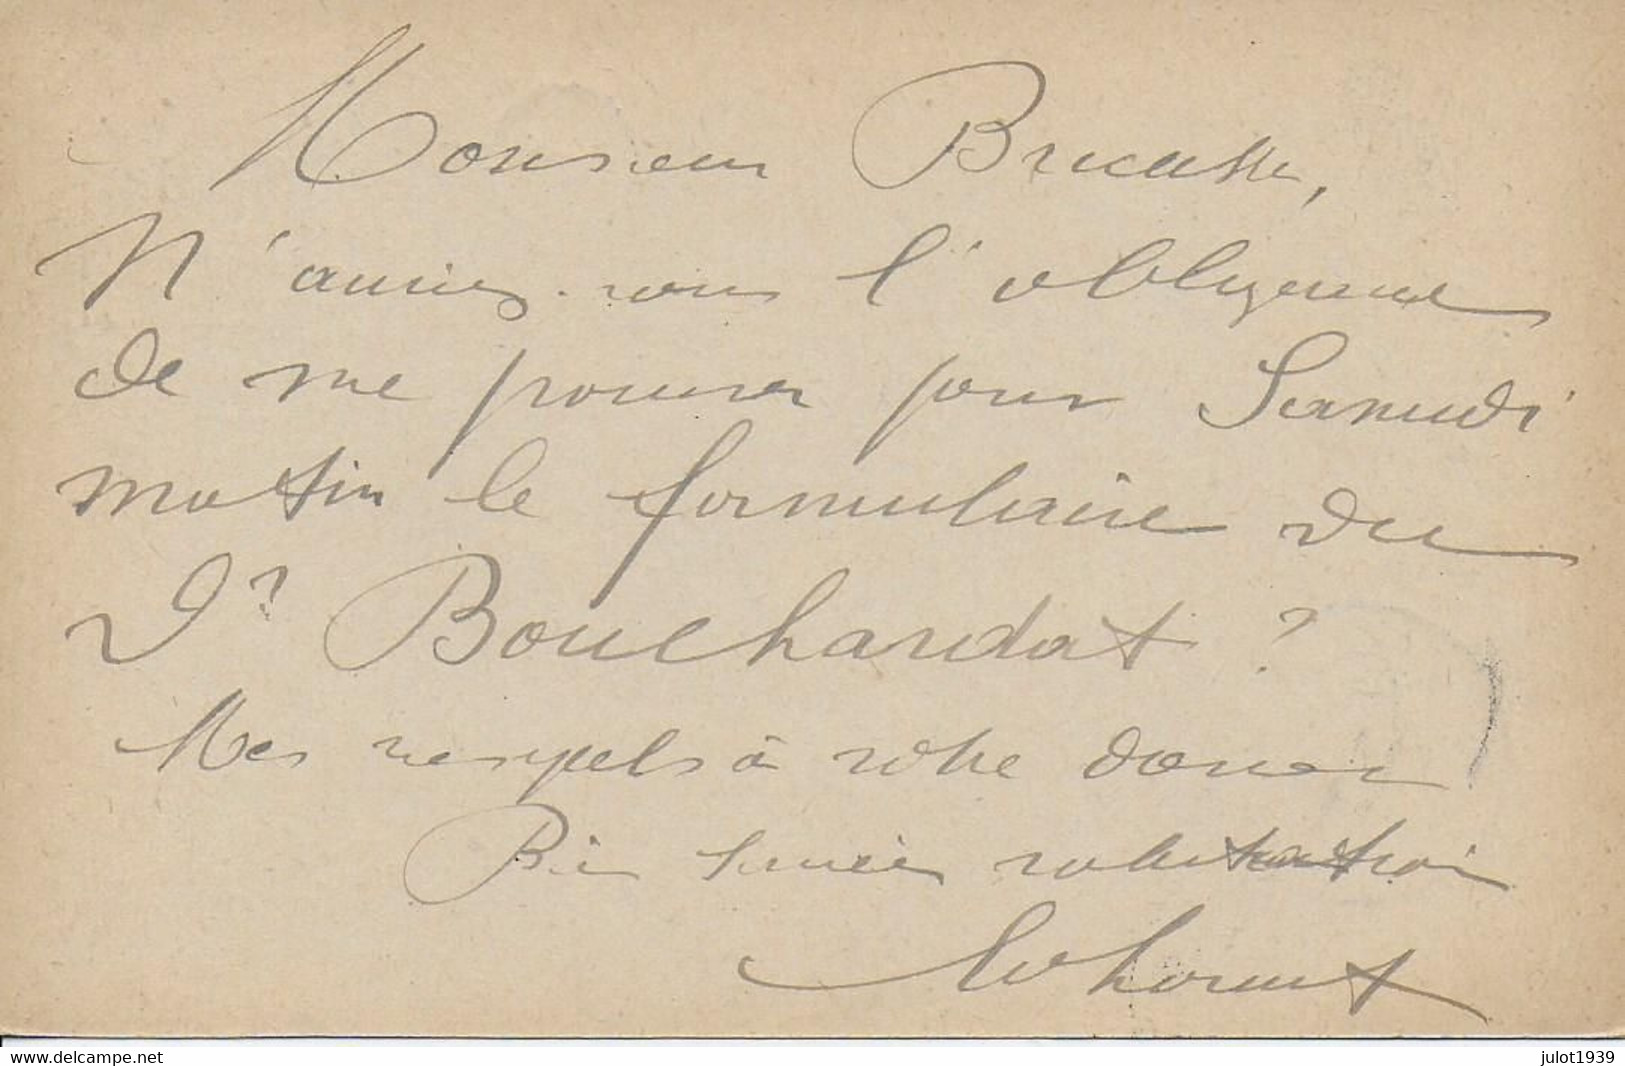 Monsieur Brucatte,
N'auriez-vous l'obligeance
de me pour pour Samedi
matin le formulaire du
Dr Bouchardat ?
Mes respects à votre dame
Bien
www.delcampe.net
julot1939